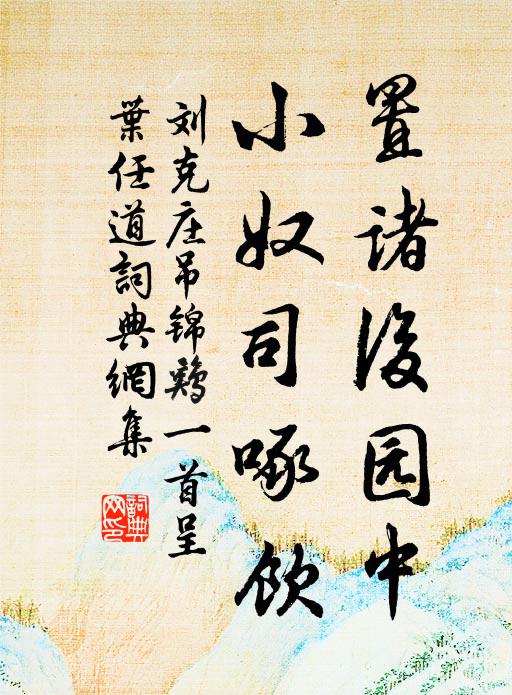 置诸後园中
小奴司啄饮
刘克庄吊锦鸡一首呈
葉任道詞典網集
詞典網印